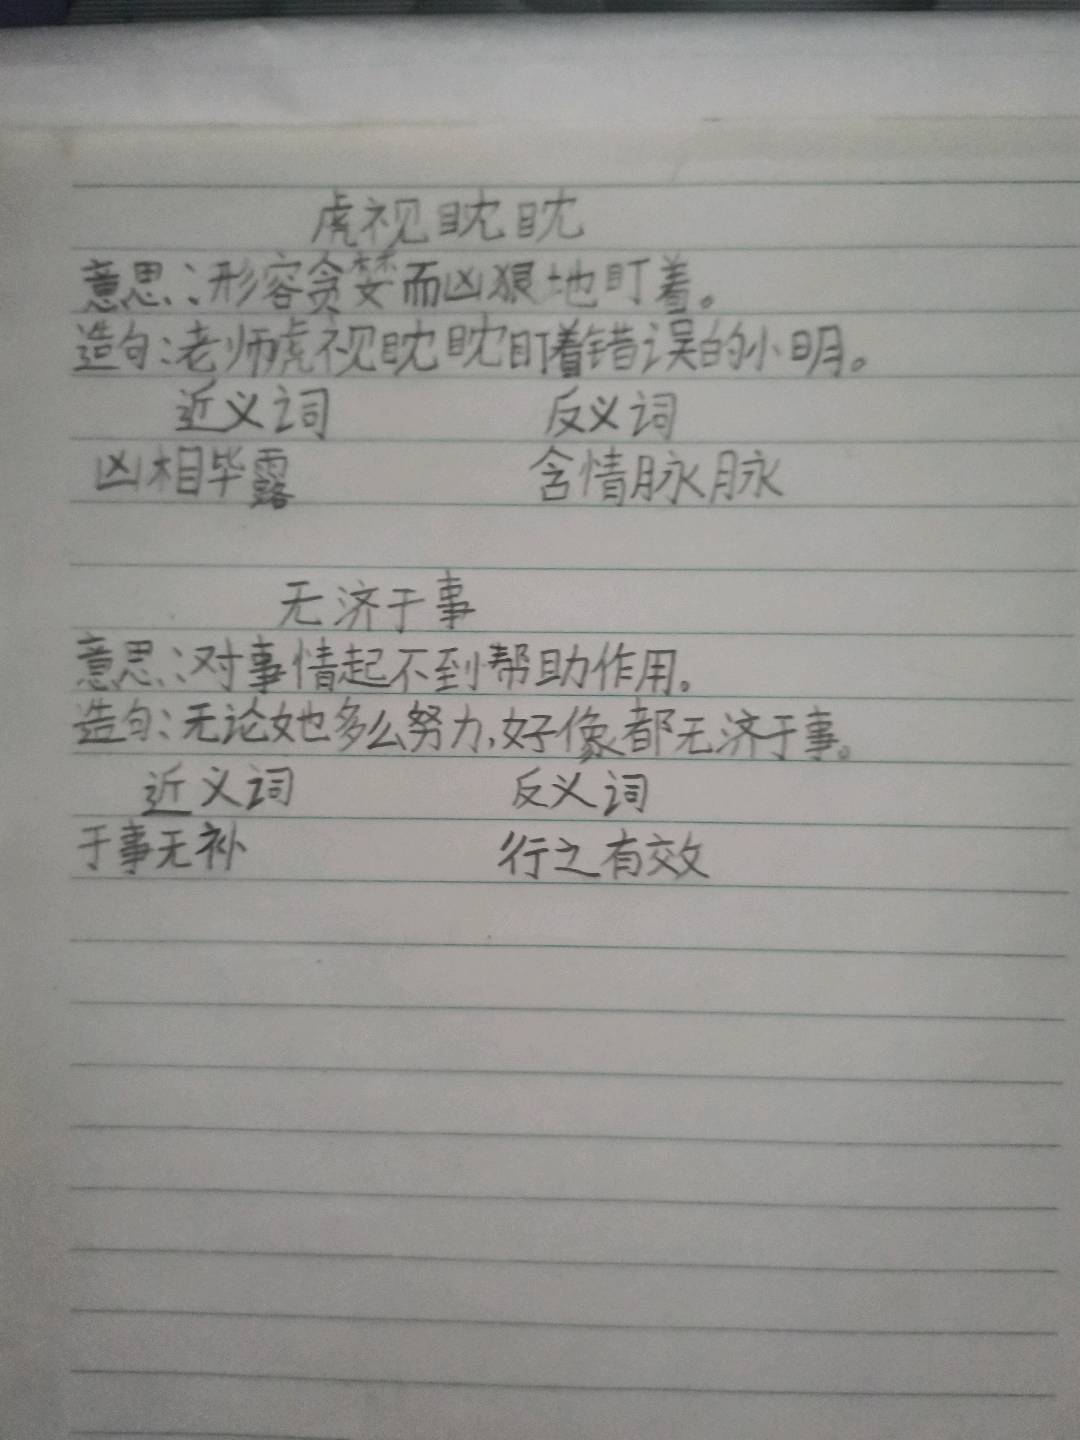 虎视眈眈
意思：形容贪婪而凶狠地盯着。
造句：老师虎视眈眈盯着错误的小明。
近义词 反义词
凶相毕露 含情脉脉
无济于事
意思：对事情起不到帮助作用。
造句：无论她多么努力，好像都无济于事。
近义词 反义词
于事无补 行之有效